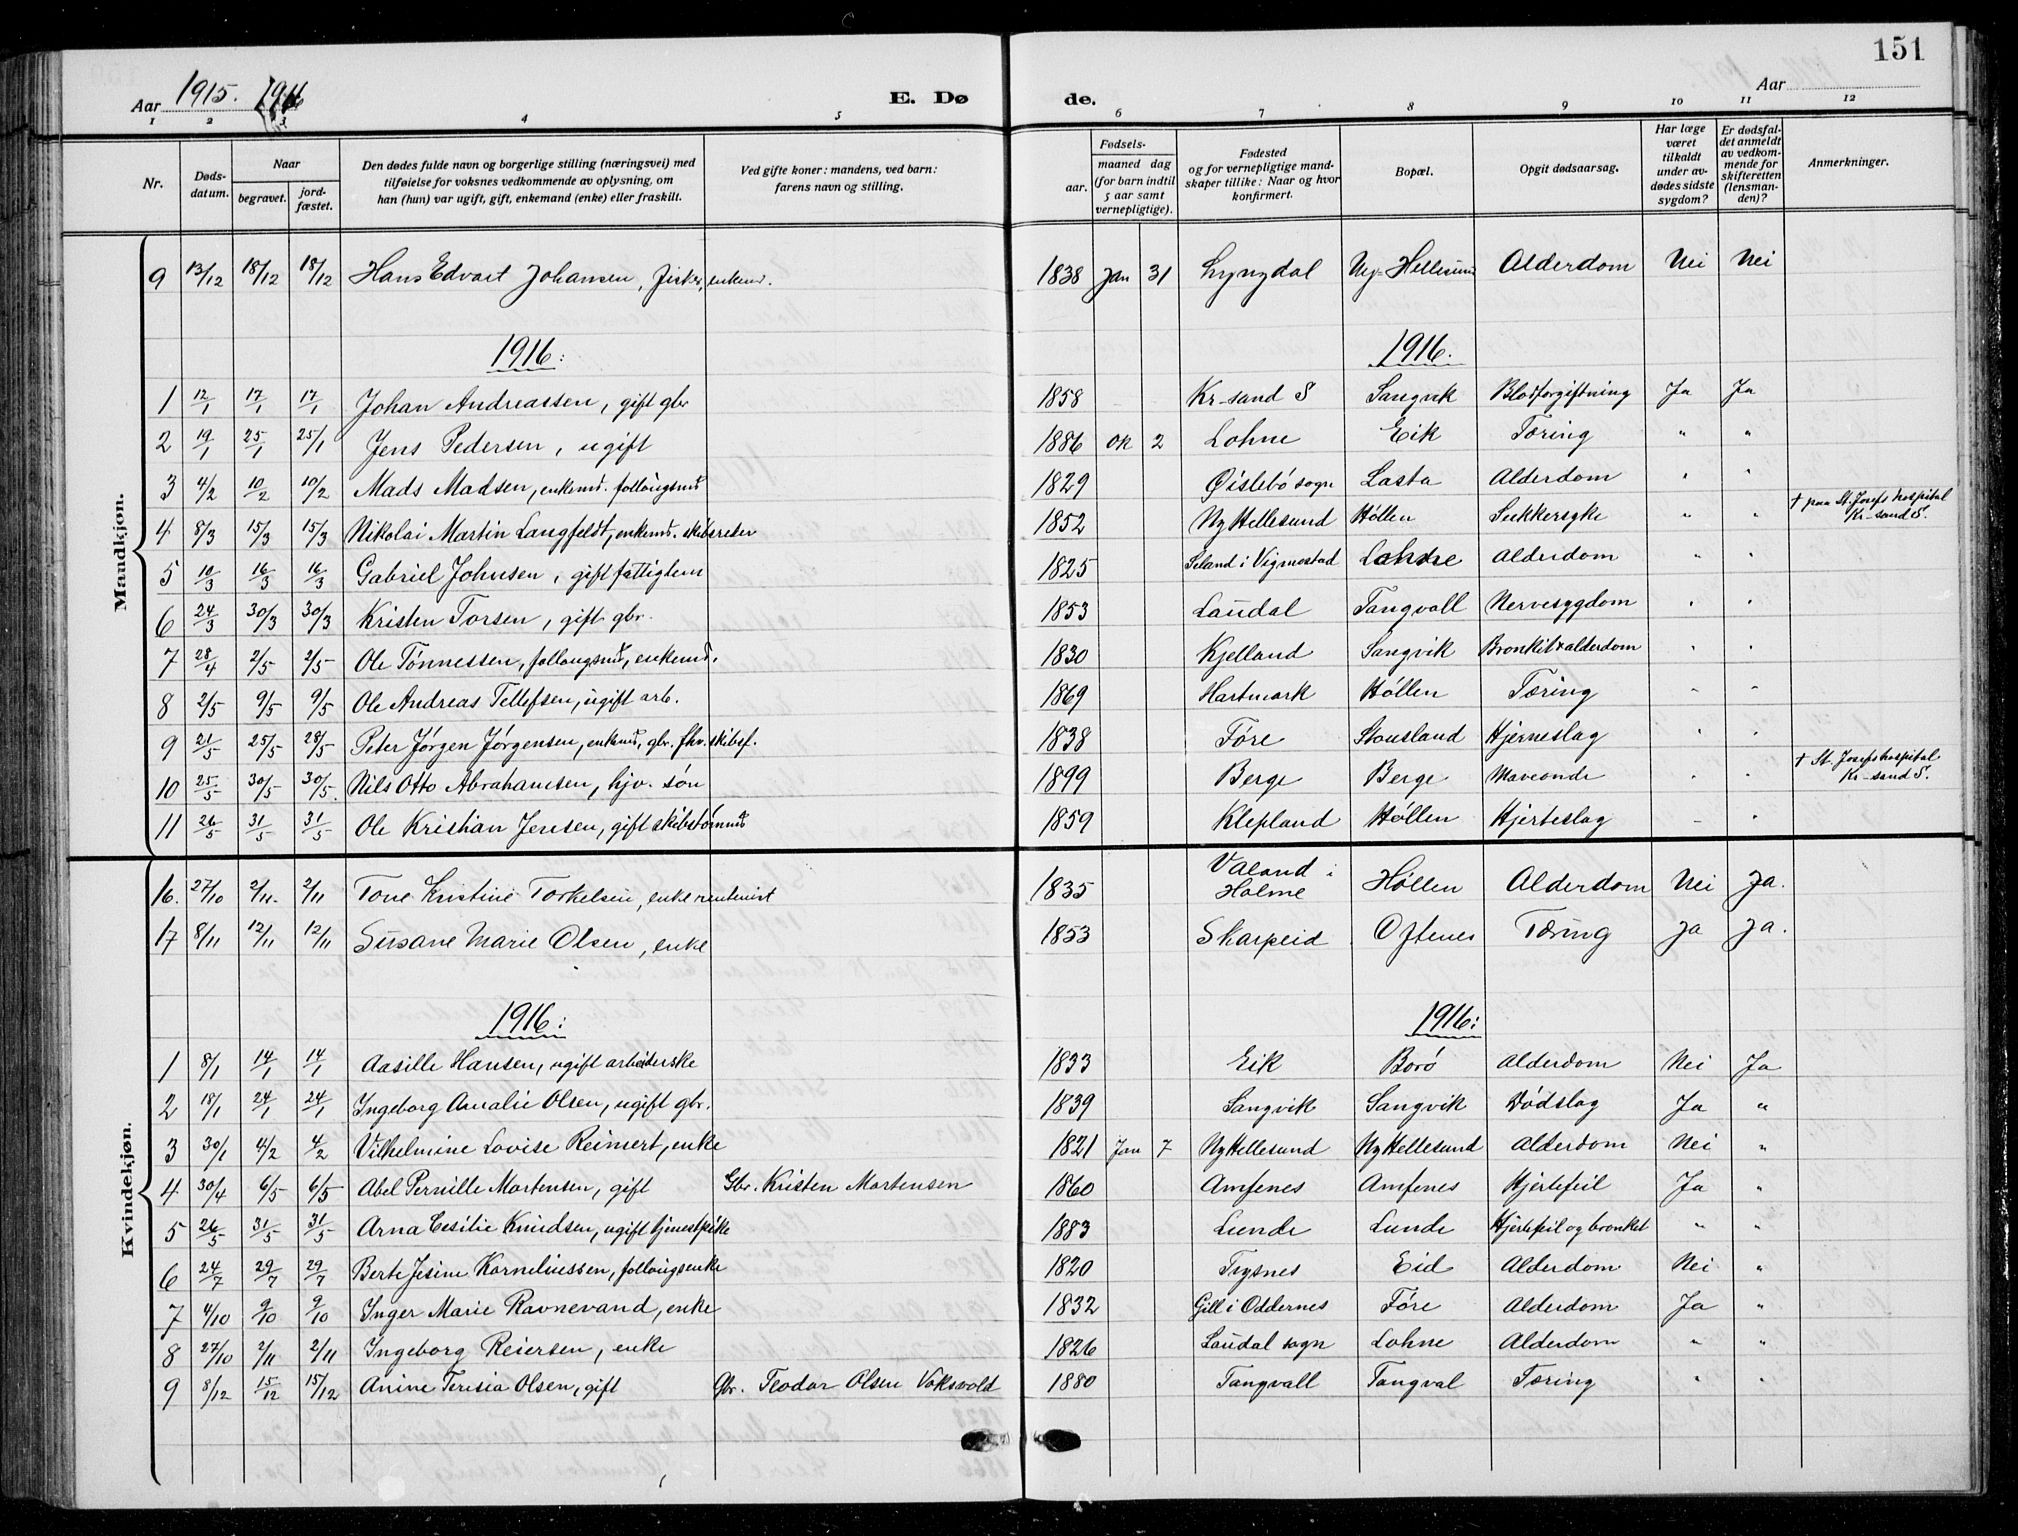 151
Aar 1915. 1916
E. Dø de.
Aar
1 2 3 4 5 6 7 8 9 10 11 12
Nr.
Døds-datum.
Naar
begravet.
jord-fæstet.
Den dødes fulde navn og borgerlige stilling (næringsvei) med
tilføielse for voksnes vedkommende av oplysning, om
han (hun) var ugift, gift, enkemand (enke) eller fraskilt.
Ved gifte koner: mandens, ved barn:
farens navn og stilling.
Fødsels-
aar.
maaned dag
(for barn indtil
5 aar samt
vernepligtige).
Fødested
og for vernepligtige mand-
skaper tillike: Naar og hvor
konfirmert.
Bopæl.
Opgit dødsaarsag.
Har læge
været
tilkaldt
under av-
dødes sidste
sygdom?
Er dødsfal-
det anmeldt
av vedkom-
mende for
skifteretten
(lensman-
den)?
Anmerkninger.
Mandkjøn.
9 13/12 18/12 18/12 Hans Edvart Johansen, fisker, enkem. 1838 Jan 31 Lyngdal Ny-Hellesund Alderdom Nei Nei
1916: 1916.
1 12/1 17/1 17/1 Johan Andreassen, gift gbr 1858 Kr-sand S Sangvik Blodforgiftning Ja Ja
2 19/1 25/1 25/1 Jens Pedersen, ugift 1886 ok 2 Lohne Eik Tæring " "
3 4/2 10/2 10/2 Mads Madsen, enkemd. follaugsmd 1829 Øislebø sogn Lasta Alderdom " "
† paa St. Josefs hospital
4 8/3 15/3 15/3 Nikolai Martin Langfeldt, enkemd. skibsreder 1852 Ny Hellesund Høllen Sukkersyke " " Kr-sand S.
5 10/3 16/3 16/3 Gabriel Johnsen, gift fattiglem 1825 Seland i Vigmostad Lohne Alderdom " "
6 24/3 30/3 30/3 Kristen Torsen, gift gbr. 1853 Laudal Tangvall Nervesygdom " "
7 28/4 2/5 2/5 Ole Tønnessen, follaugsmd, enkemd. 1830 Kjelland Sangvik Bronkit & alderdom " "
8 2/5 9/5 9/5 Ole Andreas Tellefsen, ugift arb. 1869 Hartmark Høllen Tæring " "
9 21/5 25/5 28/5 Peter Jørgen Jørgensen, enkemd, gbr. fhv. skibsf. 1838 Føre Stousland Hjerneslag " "
† St. Josefs hospital
10 25/5 30/5 30/5. Nils Otto Abrahamsen, hjv. søn 1899 Berge Berge Maveonde " " Kr-sand S.
11 26/5 31/5 31/5 Ole Kristian Jensen, gift skibstømmd 1859 Klepland Høllen Hjerteslag " "
Kvindekjøn.
16. 27/10 2/11. 2/11 Tone Kristine Torkelsen, enke rentenist 1835 Valand i Holme Høllen Alderdom Nei Ja.
17 8/11 12/11 12/11 Susane Marie Olsen, enke 1853 Skarpeid Oftenes Tæring Ja Ja.
1916: 1916:
1 8/1 14/1 14/1 Aasille Hansen, ugift arbeiderske 1833 Eik Borø Alderdom Nei Ja
2 18/1 24/1 24/1 Ingeborg Amalie Olsen, ugift gbr. 1839 Sangvik Sangvik Dødslag Ja "
3 30/1 4/2 4/2 Vilhelmine Lovise Reinert, enke 1821 Jan 7 Ny Hellesund Ny Hellesund Alderdom Nei "
4 30/4 6/5 6/5 Abel Pernille Mortensen, gift Gbr. Kristen Mortensen 1860 Amfenes Amfenes Hjertefeil Ja "
5 26/5 31/5 31/5 Arna Cesilie Knudsen, ugift tjenestpike 1883 Lunde Lunde Hjertefeil og bronket " "
6 24/7 29/7 29/7 Berte Jesine Korneliussen, follaugsenke 1820 Trysnes Eid Alderdom Nei "
7 4/10 9/10 9/10 Inger Marie Ravnevand, enke 1832 Gill i Oddernes Føre Alderdom Ja "
8 27/10 2/11 2/11 Ingeborg Reiersen, enke 1826 Laudal sogn Lohne Alderdom " "
9 8/12 15/12 15/12 Anine Teresia Olsen, gift Gbr. Teodor Olsen Voksvold 1880 Tangvall Tangval Tæring " "